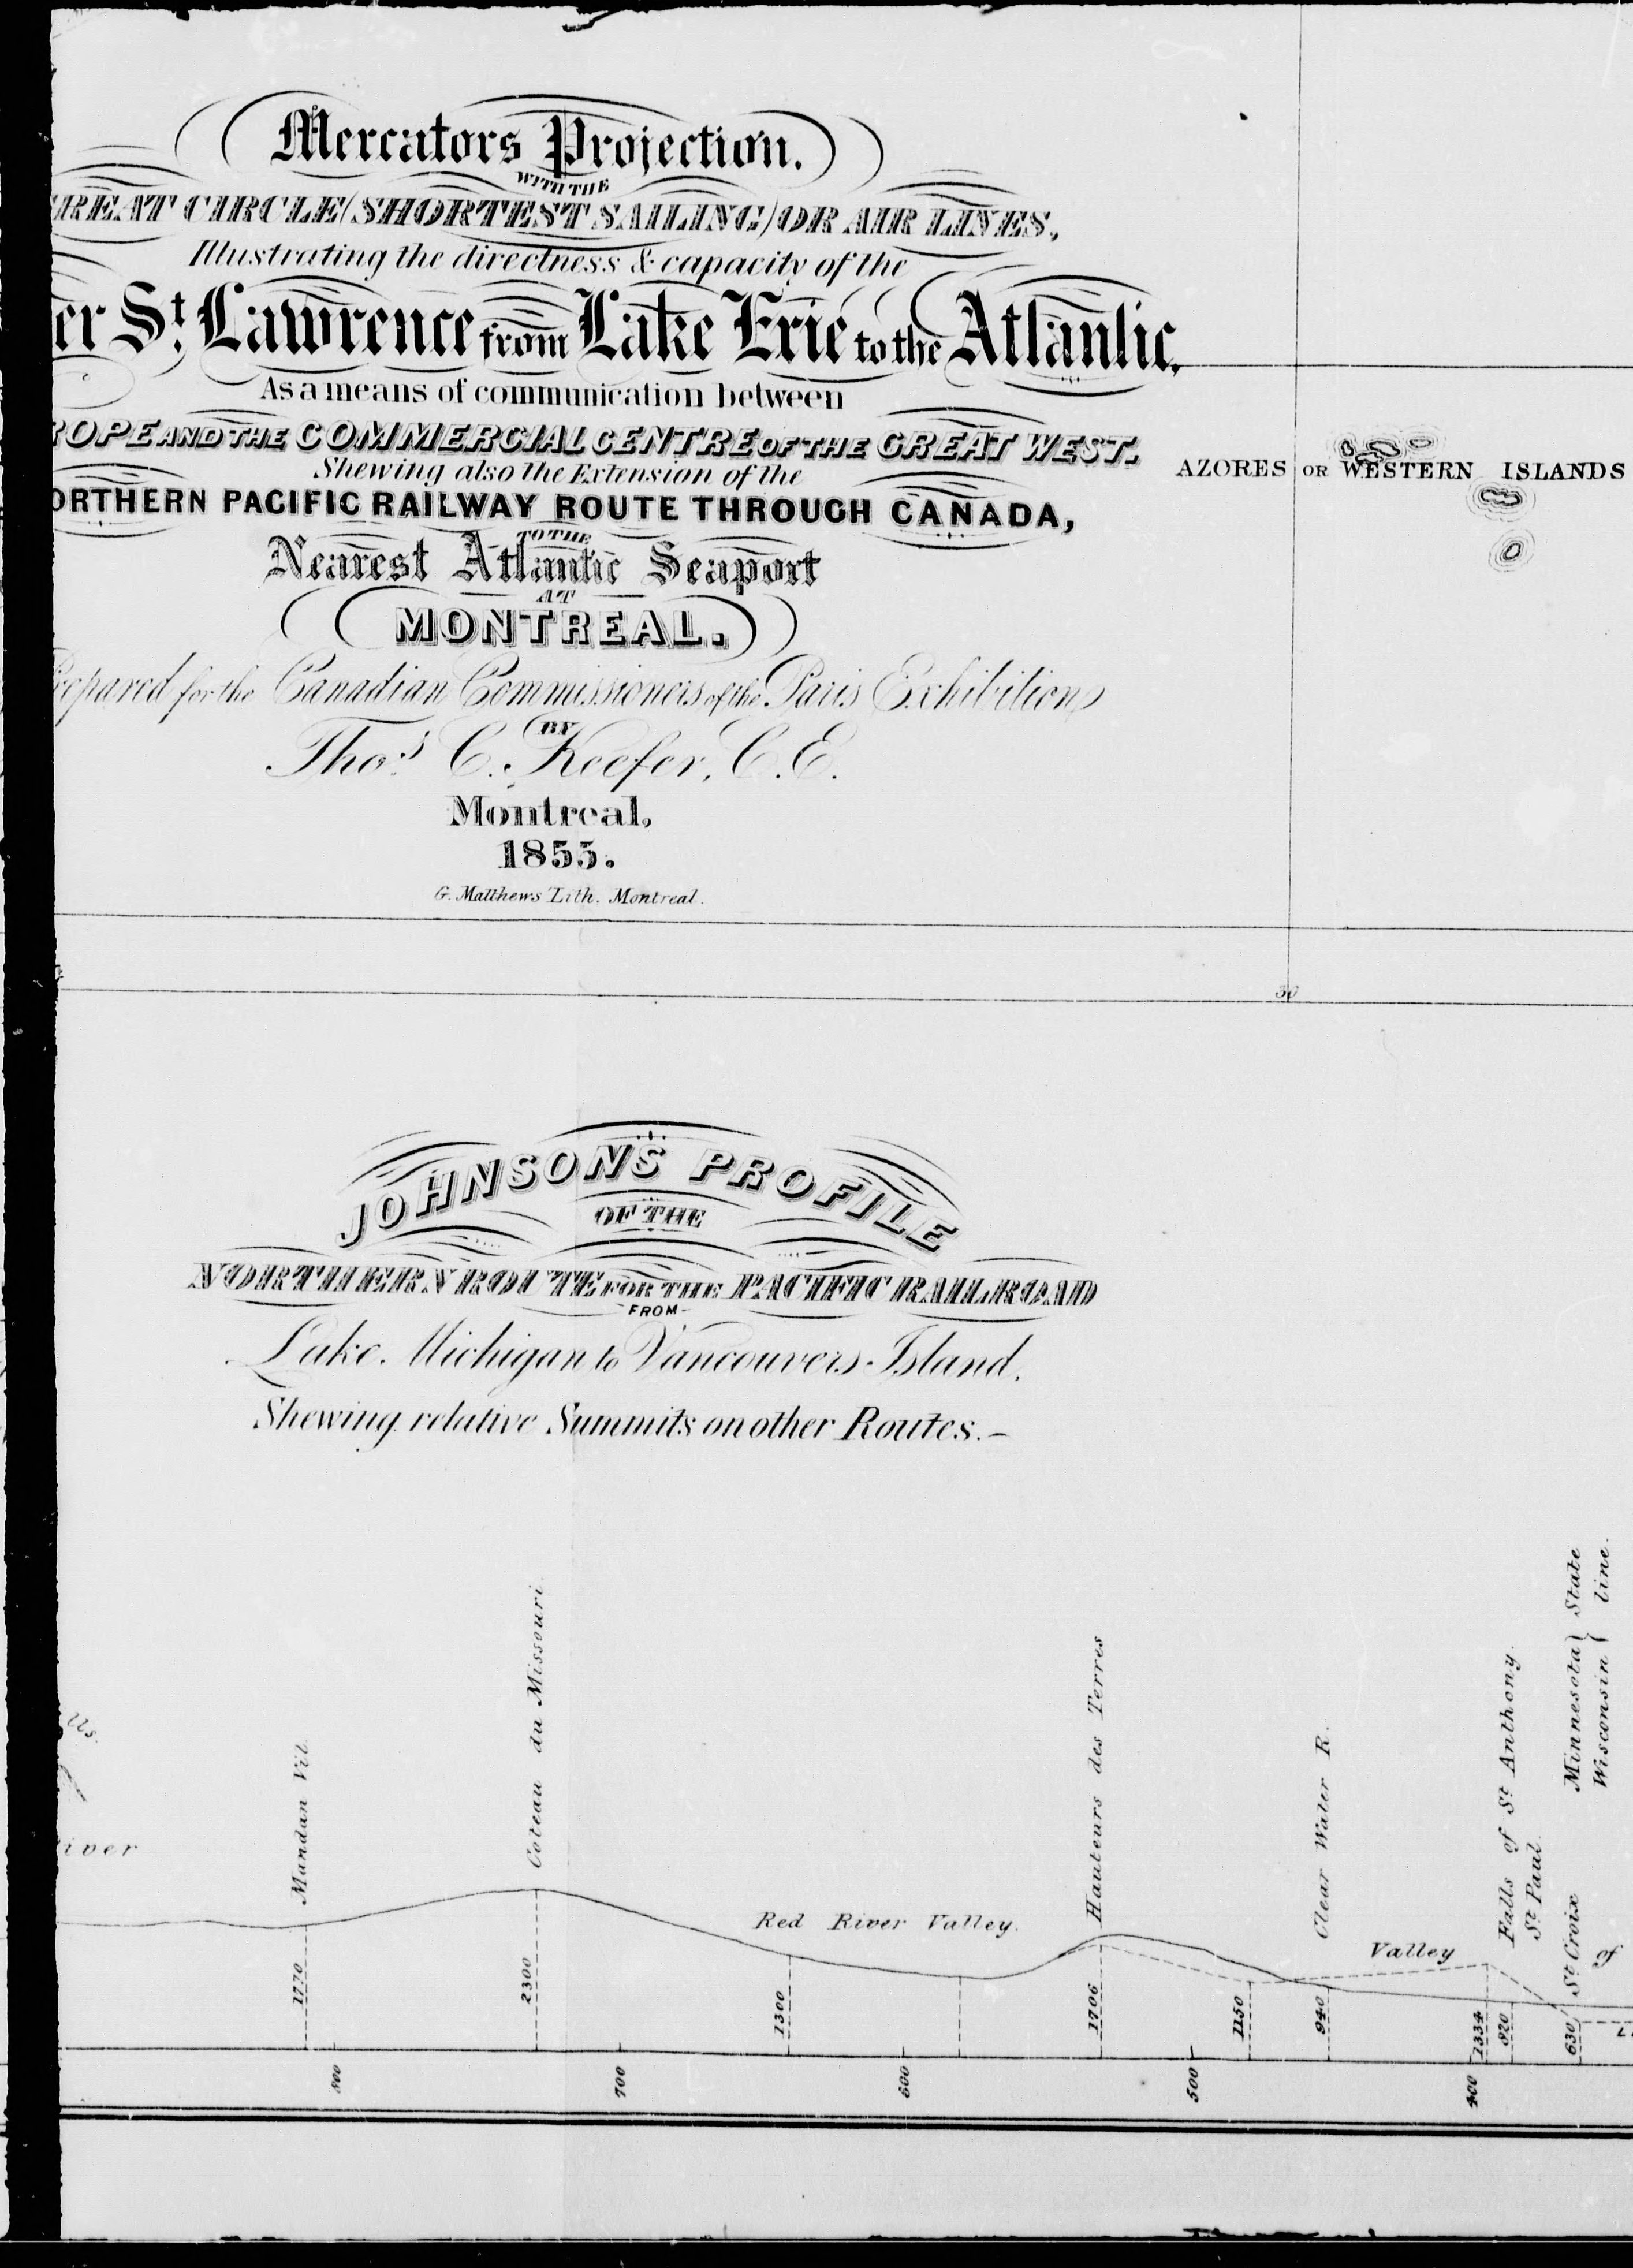 Mercators Projection.
WITH THE
REAT CIRCLE (SHORTEST SAILING) OR AIR LINES,
Illustrating the directness & capacity of the
er St. Lawrence from Lake Erie to the Atlantic,
As a means of communication between
ROPE AND THE COMMERCIAL CENTRE OF THE GREAT WEST.
Shewing also the Extension of the
ORTHERN PACIFIC RAILWAY ROUTE THROUGH CANADA,
TO THE
Nearest Atlantic Seaport
AT
MONTREAL.
repared for the Canadian Commissioners of the Paris Exhibition
BY
Thos. C. Keefer, C.E.
Montreal,
1855.
G. Matthews' Lith. Montreal.
AZORES OR WESTERN ISLANDS
JOHNSON'S PROFILE
OF THE
NORTHERN ROUTE FOR THE PACIFIC RAILROAD
FROM
Lake Michigan to Vancouvers Island,
Shewing relative Summits on other Routes.–
lls
iver
Mandan Vil.
Coteau du Missouri
Red River Valley.
Hauteurs des Terres
Clear Water R.
Valley
Falls of St. Anthony.
St. Paul
St. Croix
Minnesota } State
Wisconsin { line.
of
1770
2300
1300
1706
1150
940
1334
820
630
800
700
600
500
400